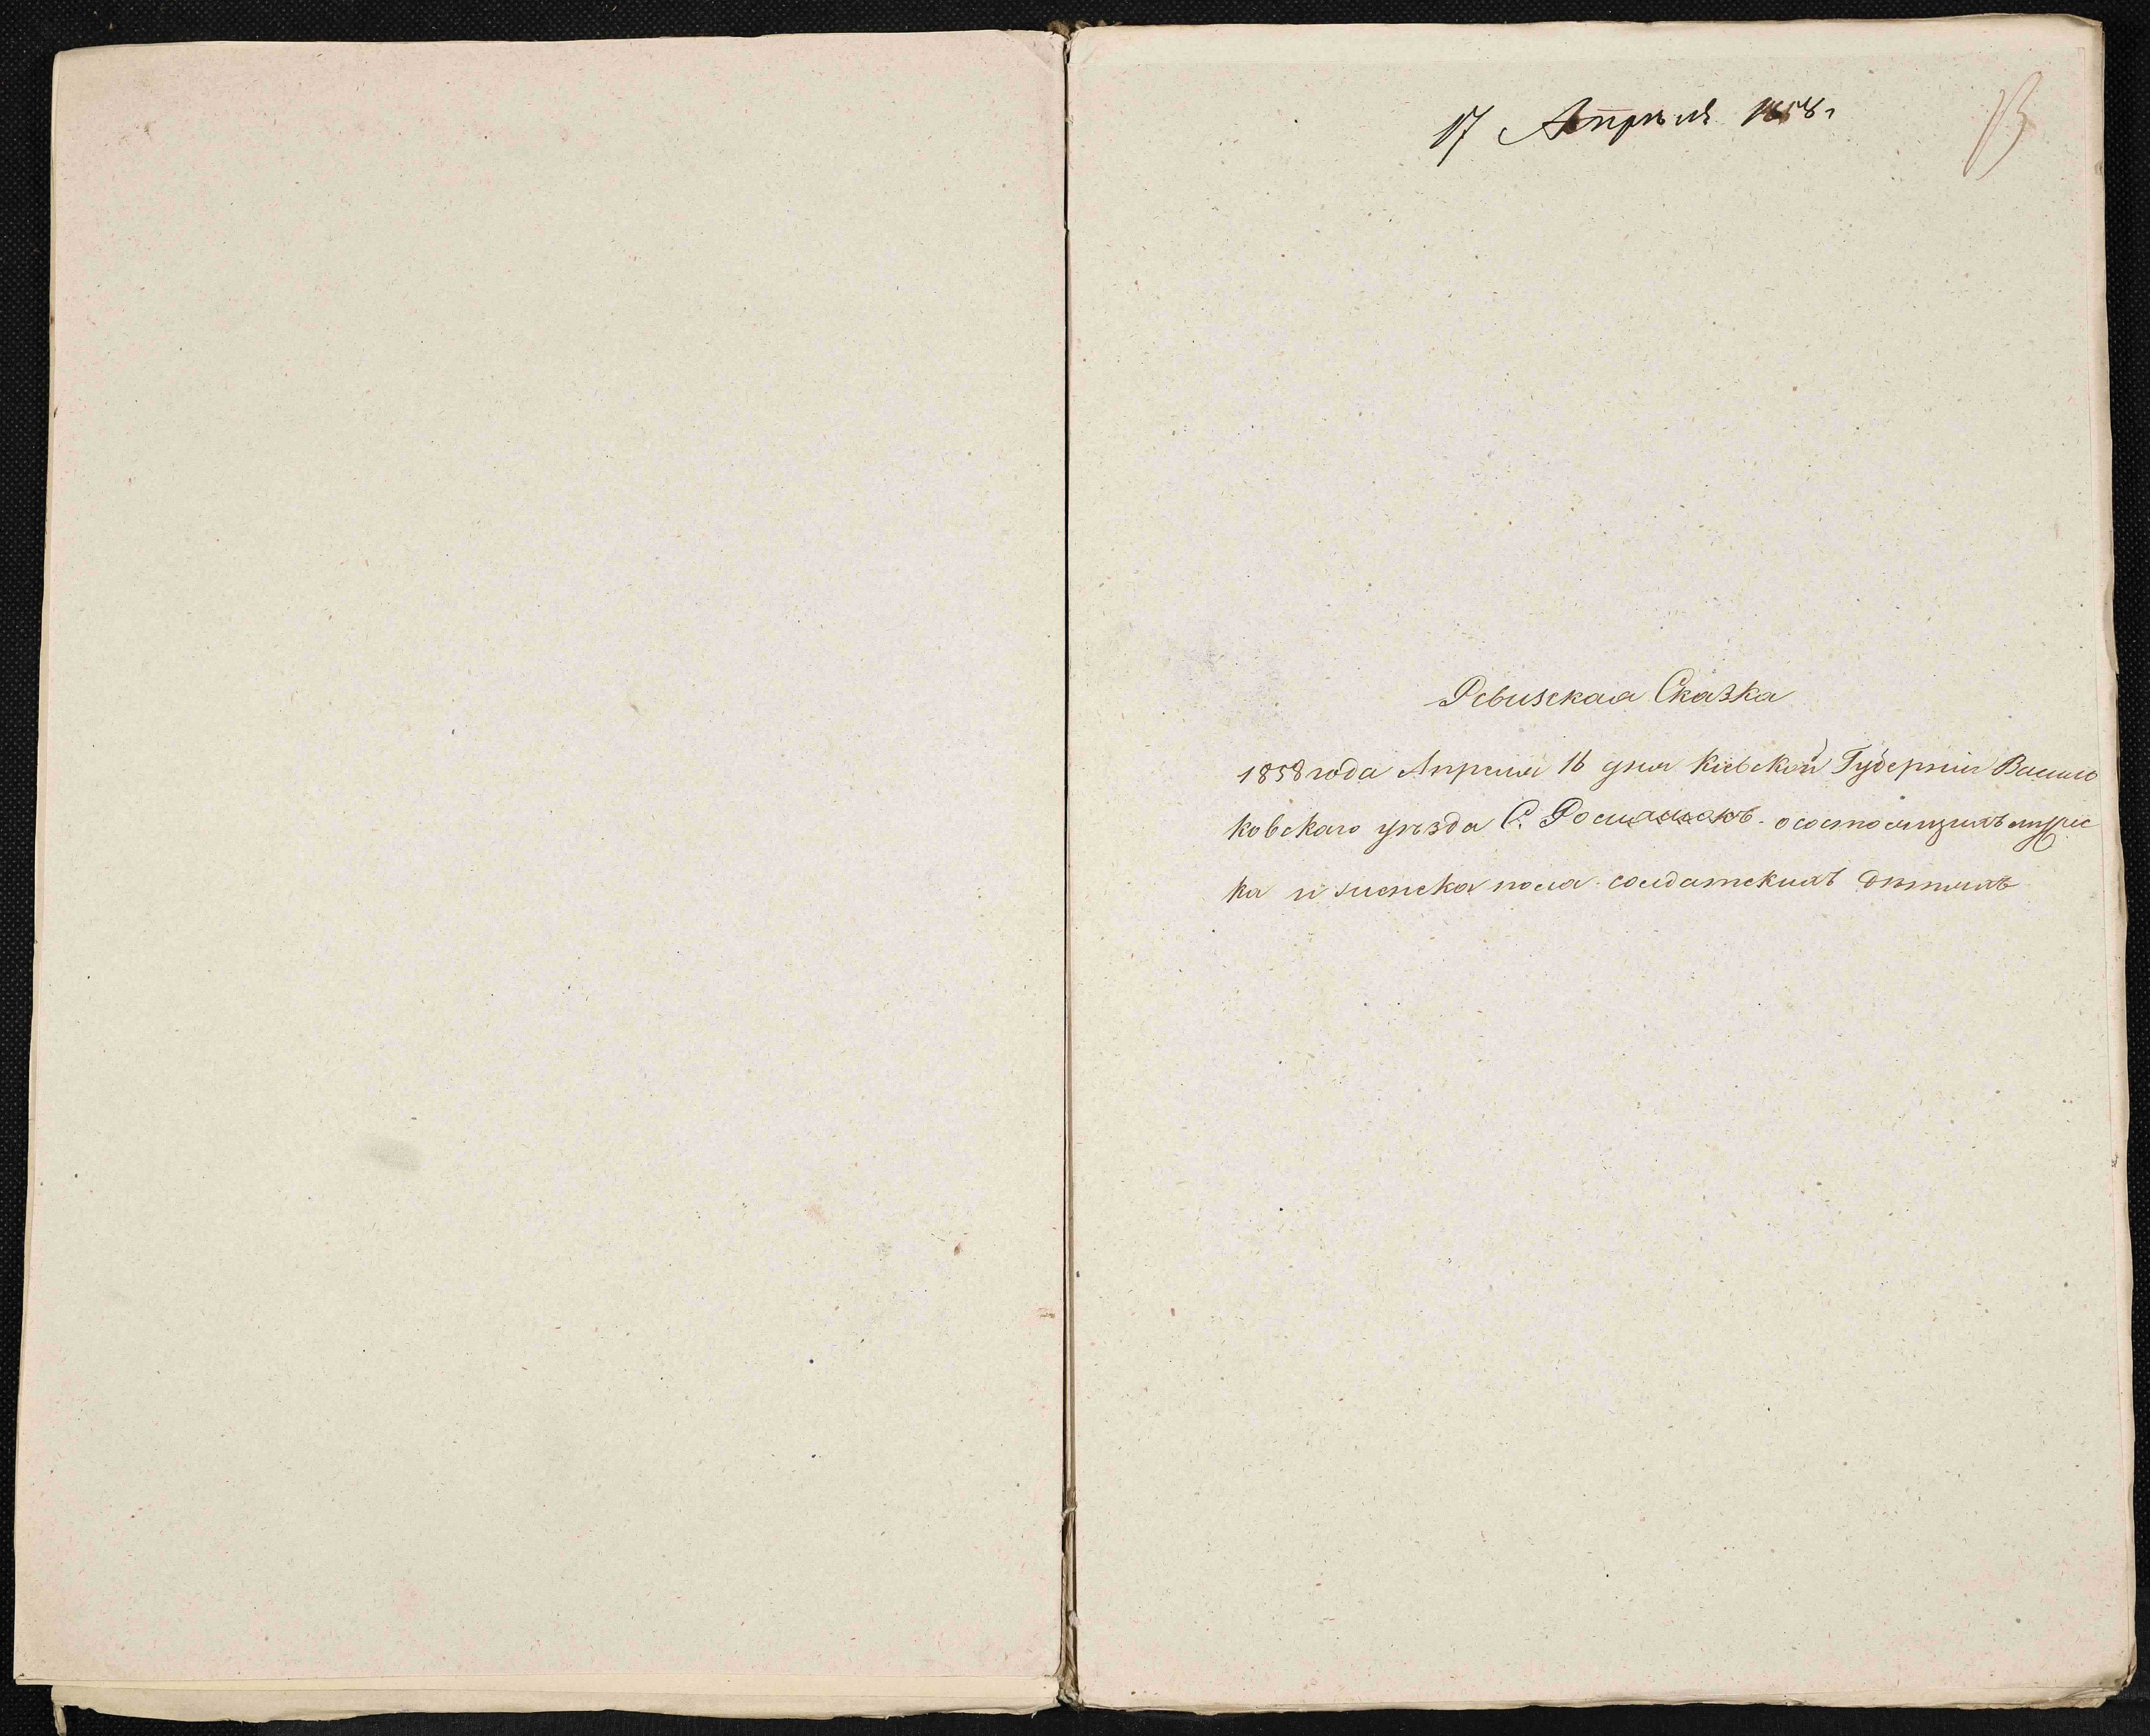 17 Апрѣля 1858 г
13
Ревизская Сказка
1858 года Апреля 16 дня Киевской Губернии Василь
ковскаго уѣзда С. о состоящихъ мужес
ка и женска пола солдатскихъ дѣтяхъ